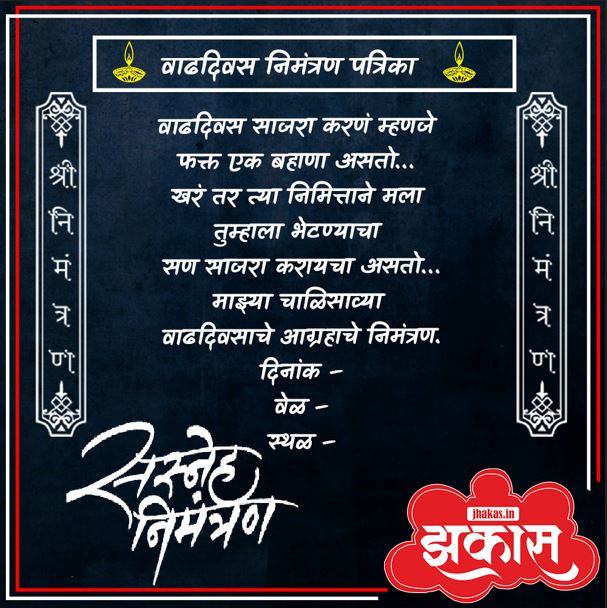 वाढदिवस निमंत्रण पत्रिका
वाढदिवस साजरा करणं म्हणजे
फक्त एक बहाणा असतो...
खरं तर त्या निमित्ताने मला
तुम्हाला भेटण्याचा
सण साजरा करायचा असतो...
माझ्या चाळिसाव्या
वाढदिवसाचे आग्रहाचे निमंत्रण.
दिनांक -
वेळ -
स्थळ -
श्री
नि
मं
त्र
ण
श्री
नि
मं
त्र
ण
सस्नेह
निमंत्रण
jhakas.in
झकास